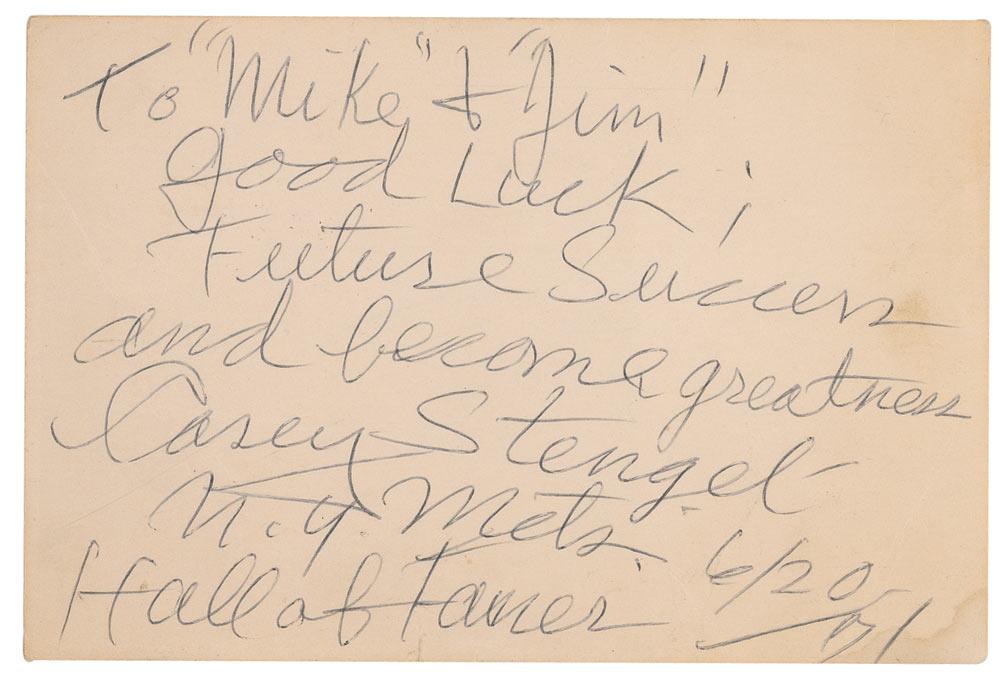 To "Mike" & "Jim"
Good Luck;
Future Success
and become greatness
Casey Stengel
N.Y. Mets.
Hall of Famer 6/20/71